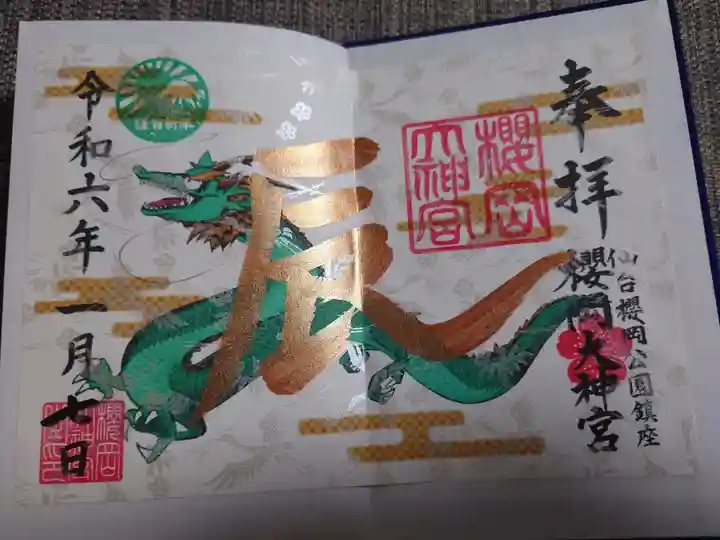 奉拝
仙台櫻岡公園鎮座
櫻岡大神宮
櫻岡大神宮
辰
令和六年一月七日